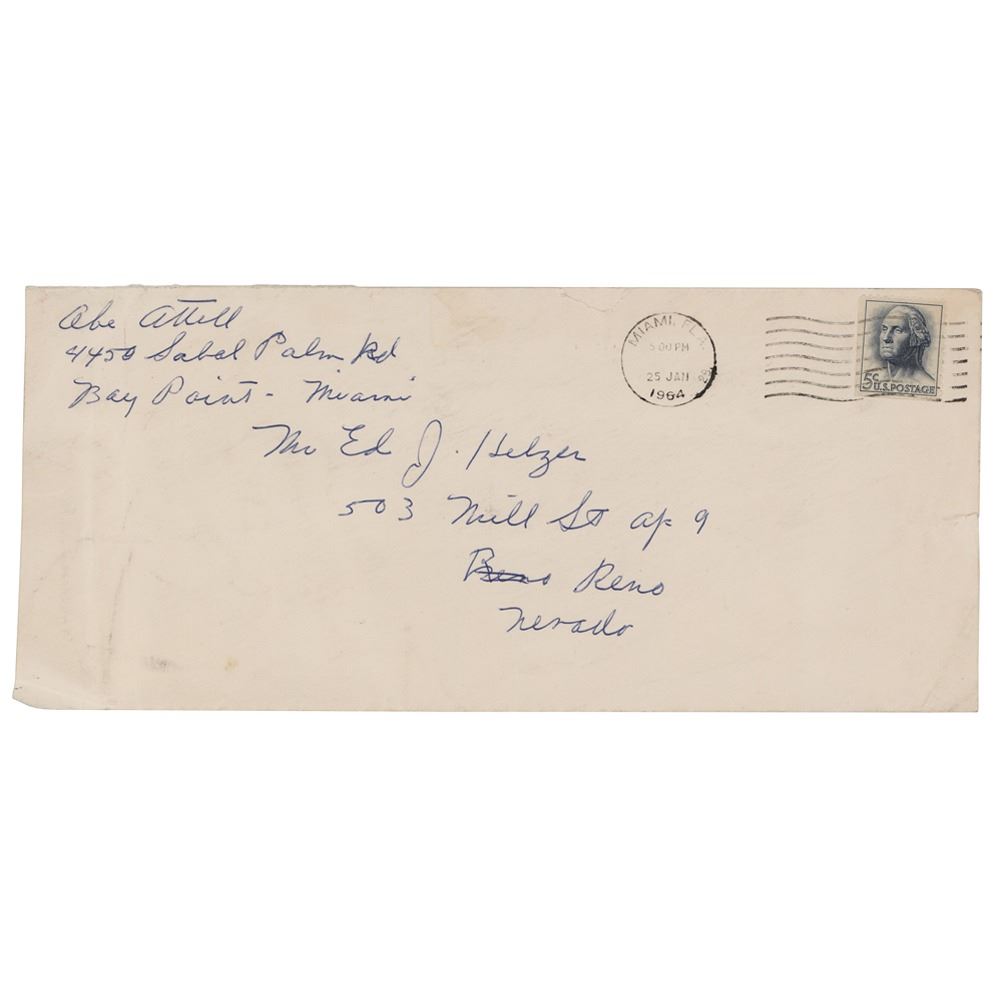 Abe Attell
4450 Sabal Palm Rd
Bay Point - Miami
MIAMI, FLA.
5 00 PM
25 JAN
1964
5c U.S. POSTAGE
Mr Ed J. Helzer
503 Mill St ap 9
Reno
Nevado